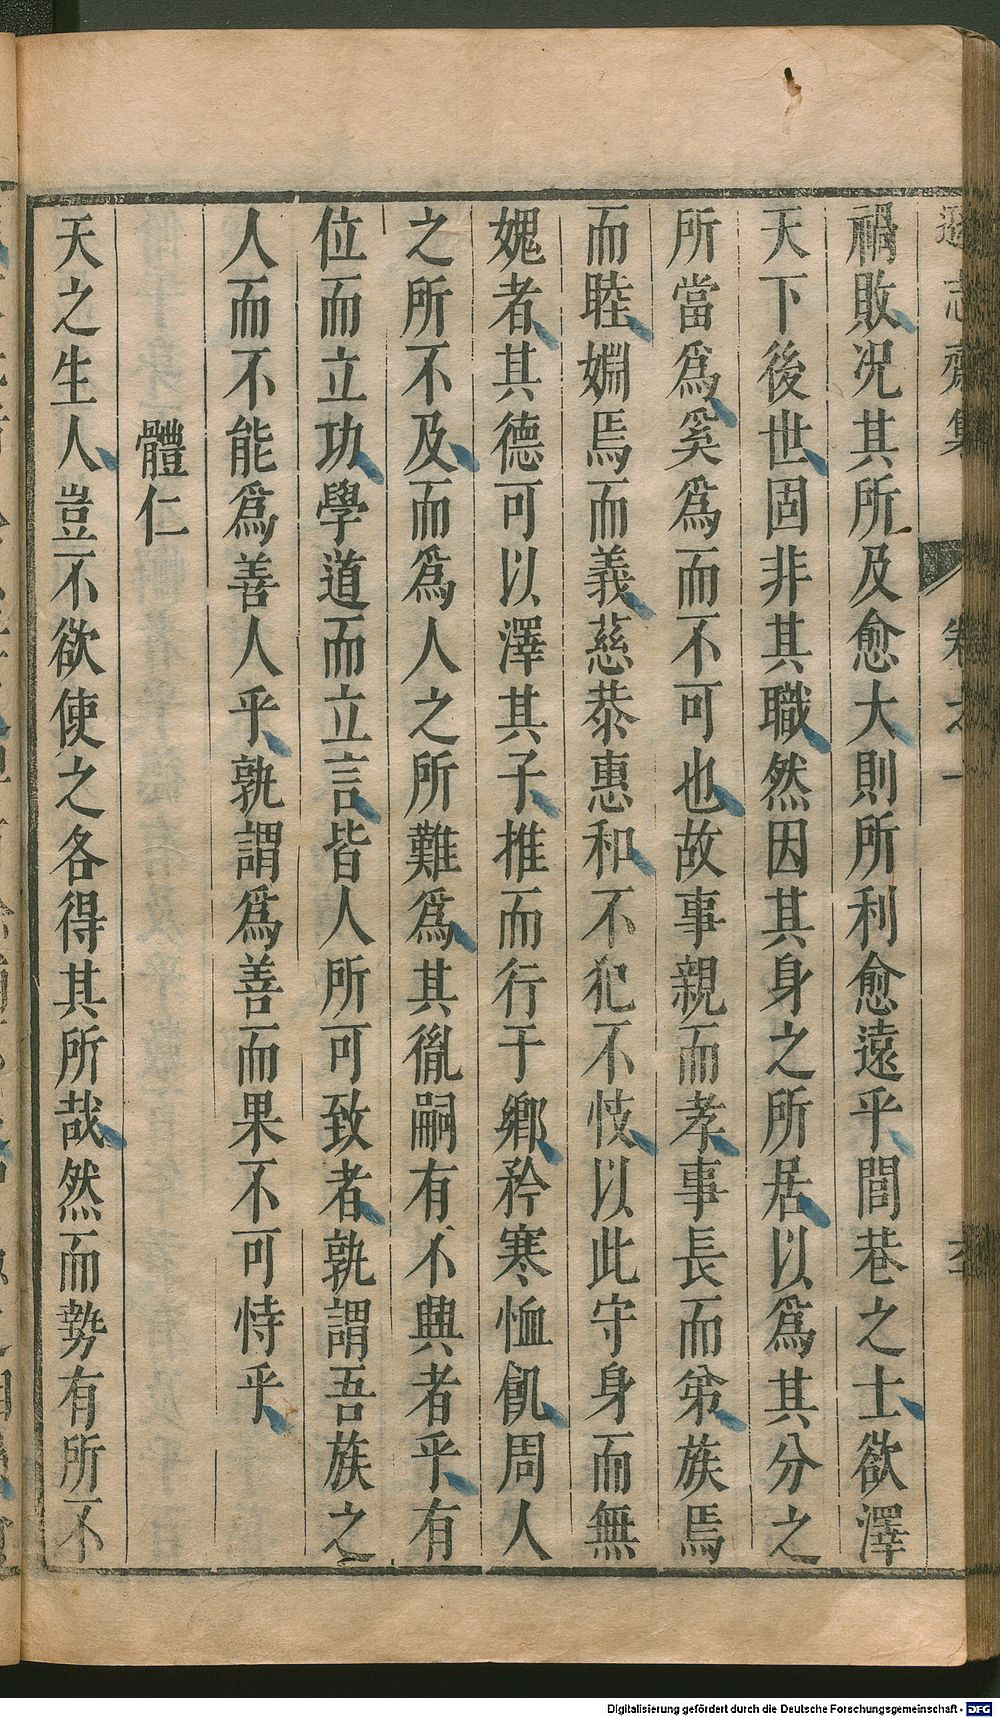 遜志齋集 卷之一
禍敗况其所及愈大則所利愈遠乎閭巷之士欲澤
天下後世固非其職然因其身之所居以爲其分之
所當爲奚爲而不可也故事親而孝事長而弟族焉
而睦婣焉而義慈恭惠和不犯不忮以此守身而無
媿者其德可以澤其子推而行于鄉矜寒恤飢周人
之所不及而爲人之所難爲其胤嗣有不興者乎有
位而立功學道而立言皆人所可致者孰謂吾族之
人而不能爲善人乎孰謂爲善而果不可恃乎
體仁
天之生人豈不欲使之各得其所哉然而勢有所不
Digitalisierung gefördert durch die Deutsche Forschungsgemeinschaft - DFG